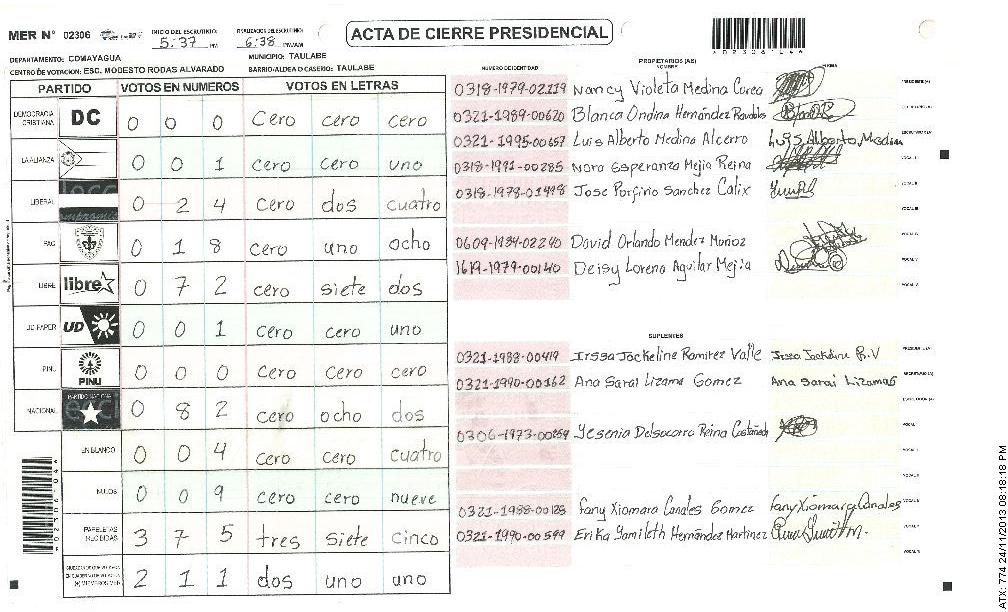 MER N° 02306
INICIO DEL ESCRUTINIO:
5:37 PM
FINALIZACION DEL ESCRUTINIO:
6:38 PM/AM
ACTA DE CIERRE PRESIDENCIAL
DEPARTAMENTO: COMAYAGUA
MUNICIPIO: TAULABE
CENTRO DE VOTACION: ESC. MODESTO RODAS ALVARADO
BARRIO/ALDEA O CASERIO: TAULABE
PARTIDO VOTOS EN NUMEROS VOTOS EN LETRAS
DEMOCRACIA CRISTIANA DC 0 0 0 cero cero cero
LA ALIANZA 0 0 1 cero cero uno
LIBERAL 0 2 4 cero dos cuatro
PAC 0 1 8 cero uno ocho
LIBRE libre 0 7 2 cero siete dos
UD-FAPER UD 0 0 1 cero cero uno
PINU PINU 0 0 0 cero cero cero
NACIONAL 0 8 2 cero ocho dos
EN BLANCO 0 0 4 cero cero cuatro
NULOS 0 0 9 cero cero nueve
PAPELETAS RECIBIDAS 3 7 5 tres siete cinco
2 1 1 dos uno uno
NUMERO DE IDENTIDAD
PROPIETARIOS (AS)
NOMBRE
FIRMA
0318-1979-02119 Nancy Violeta Medina Corea
0321-1989-00620 Blanca Ondina Hernández
0321-1995-00657 Luis Alberto Medina Alcerro Luis Alberto Medin
0318-1971-00285 Nora Esperanza Mejia Reina
0318-1978-01498 Jose Porfirio Sanchez Calix
0609-1984-02240 David Orlando Mendez Muñoz
1619-1979-00140 Deisy Lorena Aguilar Mejia
SUPLENTES
0321-1988-00419 Irssa Jackeline Ramirez Valle Irssa Jackeline R.V
0321-1990-00162 Ana Sarai Lizama Gomez Ana Sarai Lizamas
0306-1973-00259 Yesenia Delsocorro Reina Castañeda
0321-1988-00128 Fany Xiomara Canales Gomez Fany Xiomara Canales
0321-1990-00599 Erika Yamileth Hernández Martinez
ATX: 774 24/11/2013 08:18:18 PM